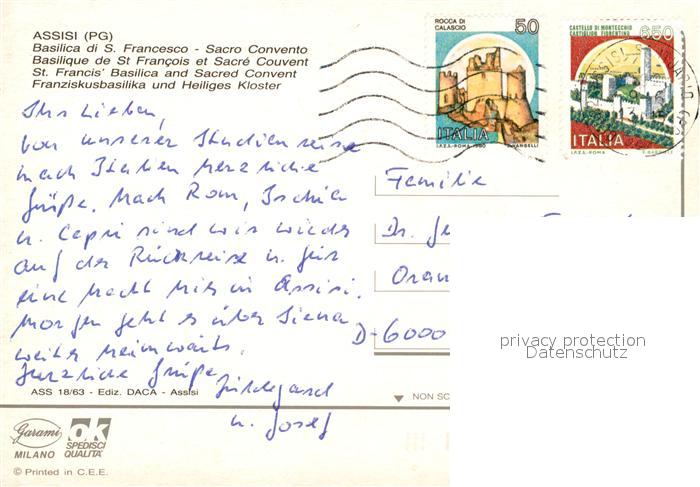 ASSISI (PG)
Basilica di S. Francesco - Sacro Convento
Basilique de St François et Sacré Couvent
St. Francis' Basilica and Sacred Convent
Franziskusbasilika und Heiliges Kloster
ROCCA DI
CALASCIO
50
ITALIA
I.P.Z.S.-ROMA-1980
CASTELLO DI MONTECCHIO
CASTIGLION FIORENTINO
650
ITALIA
I.P.Z.S.-ROMA
Ihr Lieben,
von unserer Studienreise
nach Italien herzliche
Grüße. Nach Rom, Ischia
u. Capri sind wir wieder
auf der Rückreise u. für
eine Nacht hier in Assisi.
Morgen geht es über Siena
weiter heimwärts.
Herzliche Grüße
Hildegard
u. Josef
Familie
Dr. Ge
Oran
D-6000
privacy protection
Datenschutz
ASS 18/63 - Ediz. DACA - Assisi
NON SC
Garami
MILANO
ok
SPEDISCI
QUALITÀ
© Printed in C.E.E.